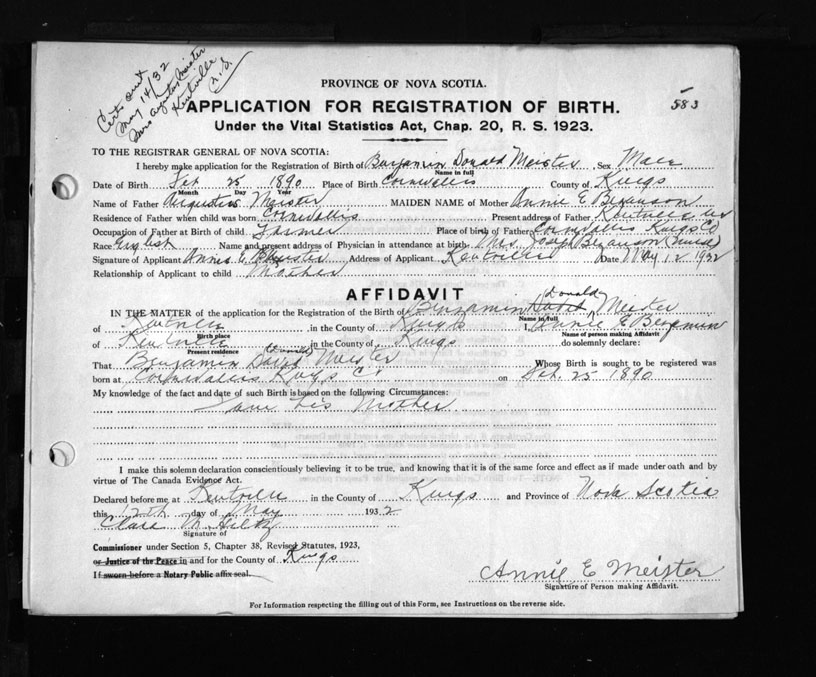 Certs sent
May 14/32
Mrs Augustus Meister
Kentville
N.S.
583
PROVINCE OF NOVA SCOTIA.
APPLICATION FOR REGISTRATION OF BIRTH.
Under the Vital Statistics Act, Chap. 20, R. S. 1923.
TO THE REGISTRAR GENERAL OF NOVA SCOTIA:
I hereby make application for the Registration of Birth of Benjamin Donald Meister Sex Male
Name in full
Date of Birth Feb 25 1890 Place of Birth Cornwallis County of Kings
Month Day Year
Name of Father Augustus Meister MAIDEN NAME of Mother Annie E Bezanson
Residence of Father when child was born Cornwallis Present address of Father Kentville NS
Occupation of Father at Birth of child Farmer Place of birth of Father Cornwallis Kings Co
Race English Name and present address of Physician in attendance at birth Mrs. Joseph Bezanson (nurse)
Signature of Applicant Annie E. Meister Address of Applicant Kentville Date May 12 1932
Relationship of Applicant to child Mother
AFFIDAVIT
Donald
IN THE MATTER of the application for the Registration of the Birth of Benjamin David Meister
Name in full
of Kentville in the County of Kings I, Annie E Benjamin
Birth place Name of person making Affidavit
of Kentville in the County of Kings do solemnly declare:
Present residence
Donald
That Benjamin David Meister Whose Birth is sought to be registered was
born at Cornwallis Kings Co on Feb. 25 1890
My knowledge of the fact and date of such Birth is based on the following Circumstances:
I am his Mother
I make this solemn declaration conscientiously believing it to be true, and knowing that it is of the same force and effect as if made under oath and by
virtue of The Canada Evidence Act.
Declared before me at Kentville in the County of Kings and Province of Nova Scotia
this 12th day of May 1932
Clara M. Hiltz
Signature of
Commissioner under Section 5, Chapter 38, Revised Statutes, 1923,
or Justice of the Peace in and for the County of Kings
If sworn before a Notary Public affix seal.
Annie E Meister
Signature of Person making Affidavit.
For Information respecting the filling out of this Form, see Instructions on the reverse side.